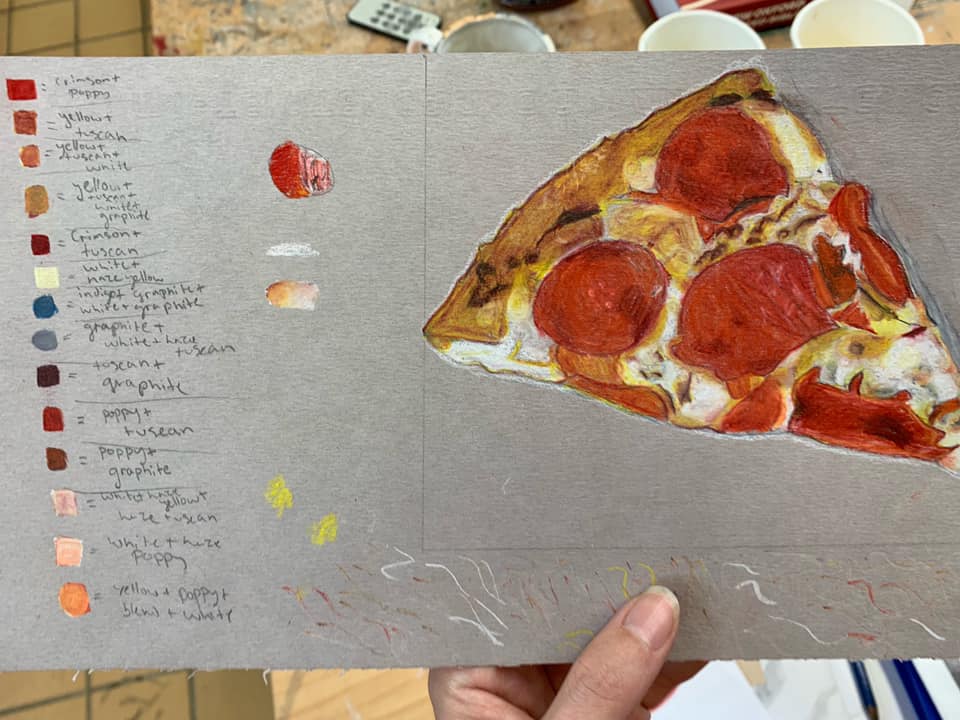 = crimson +
poppy
= yellow +
tuscan
= yellow +
tuscan +
white
= yellow +
tuscan +
white +
graphite
= Crimson +
tuscan
= white +
haze yellow
= indigo + graphite +
white + graphite
= graphite +
white + haze
tuscan
= tuscan +
graphite
= poppy +
tuscan
= poppy +
graphite
= white + haze
yellow +
haze + tuscan
= white + haze
poppy
= yellow + poppy +
blend + white